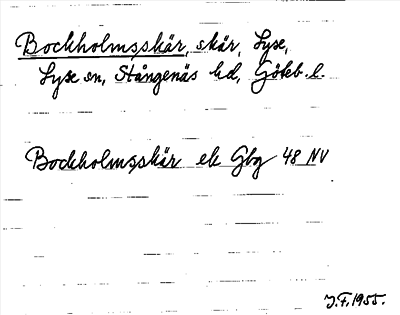 Bockholmsskär, skär, Lyse,
Lyse sn, Stångenäs hd, Göteb. l.
Bockholmsskär ek Gbg 48 NV
J.F. 1955.